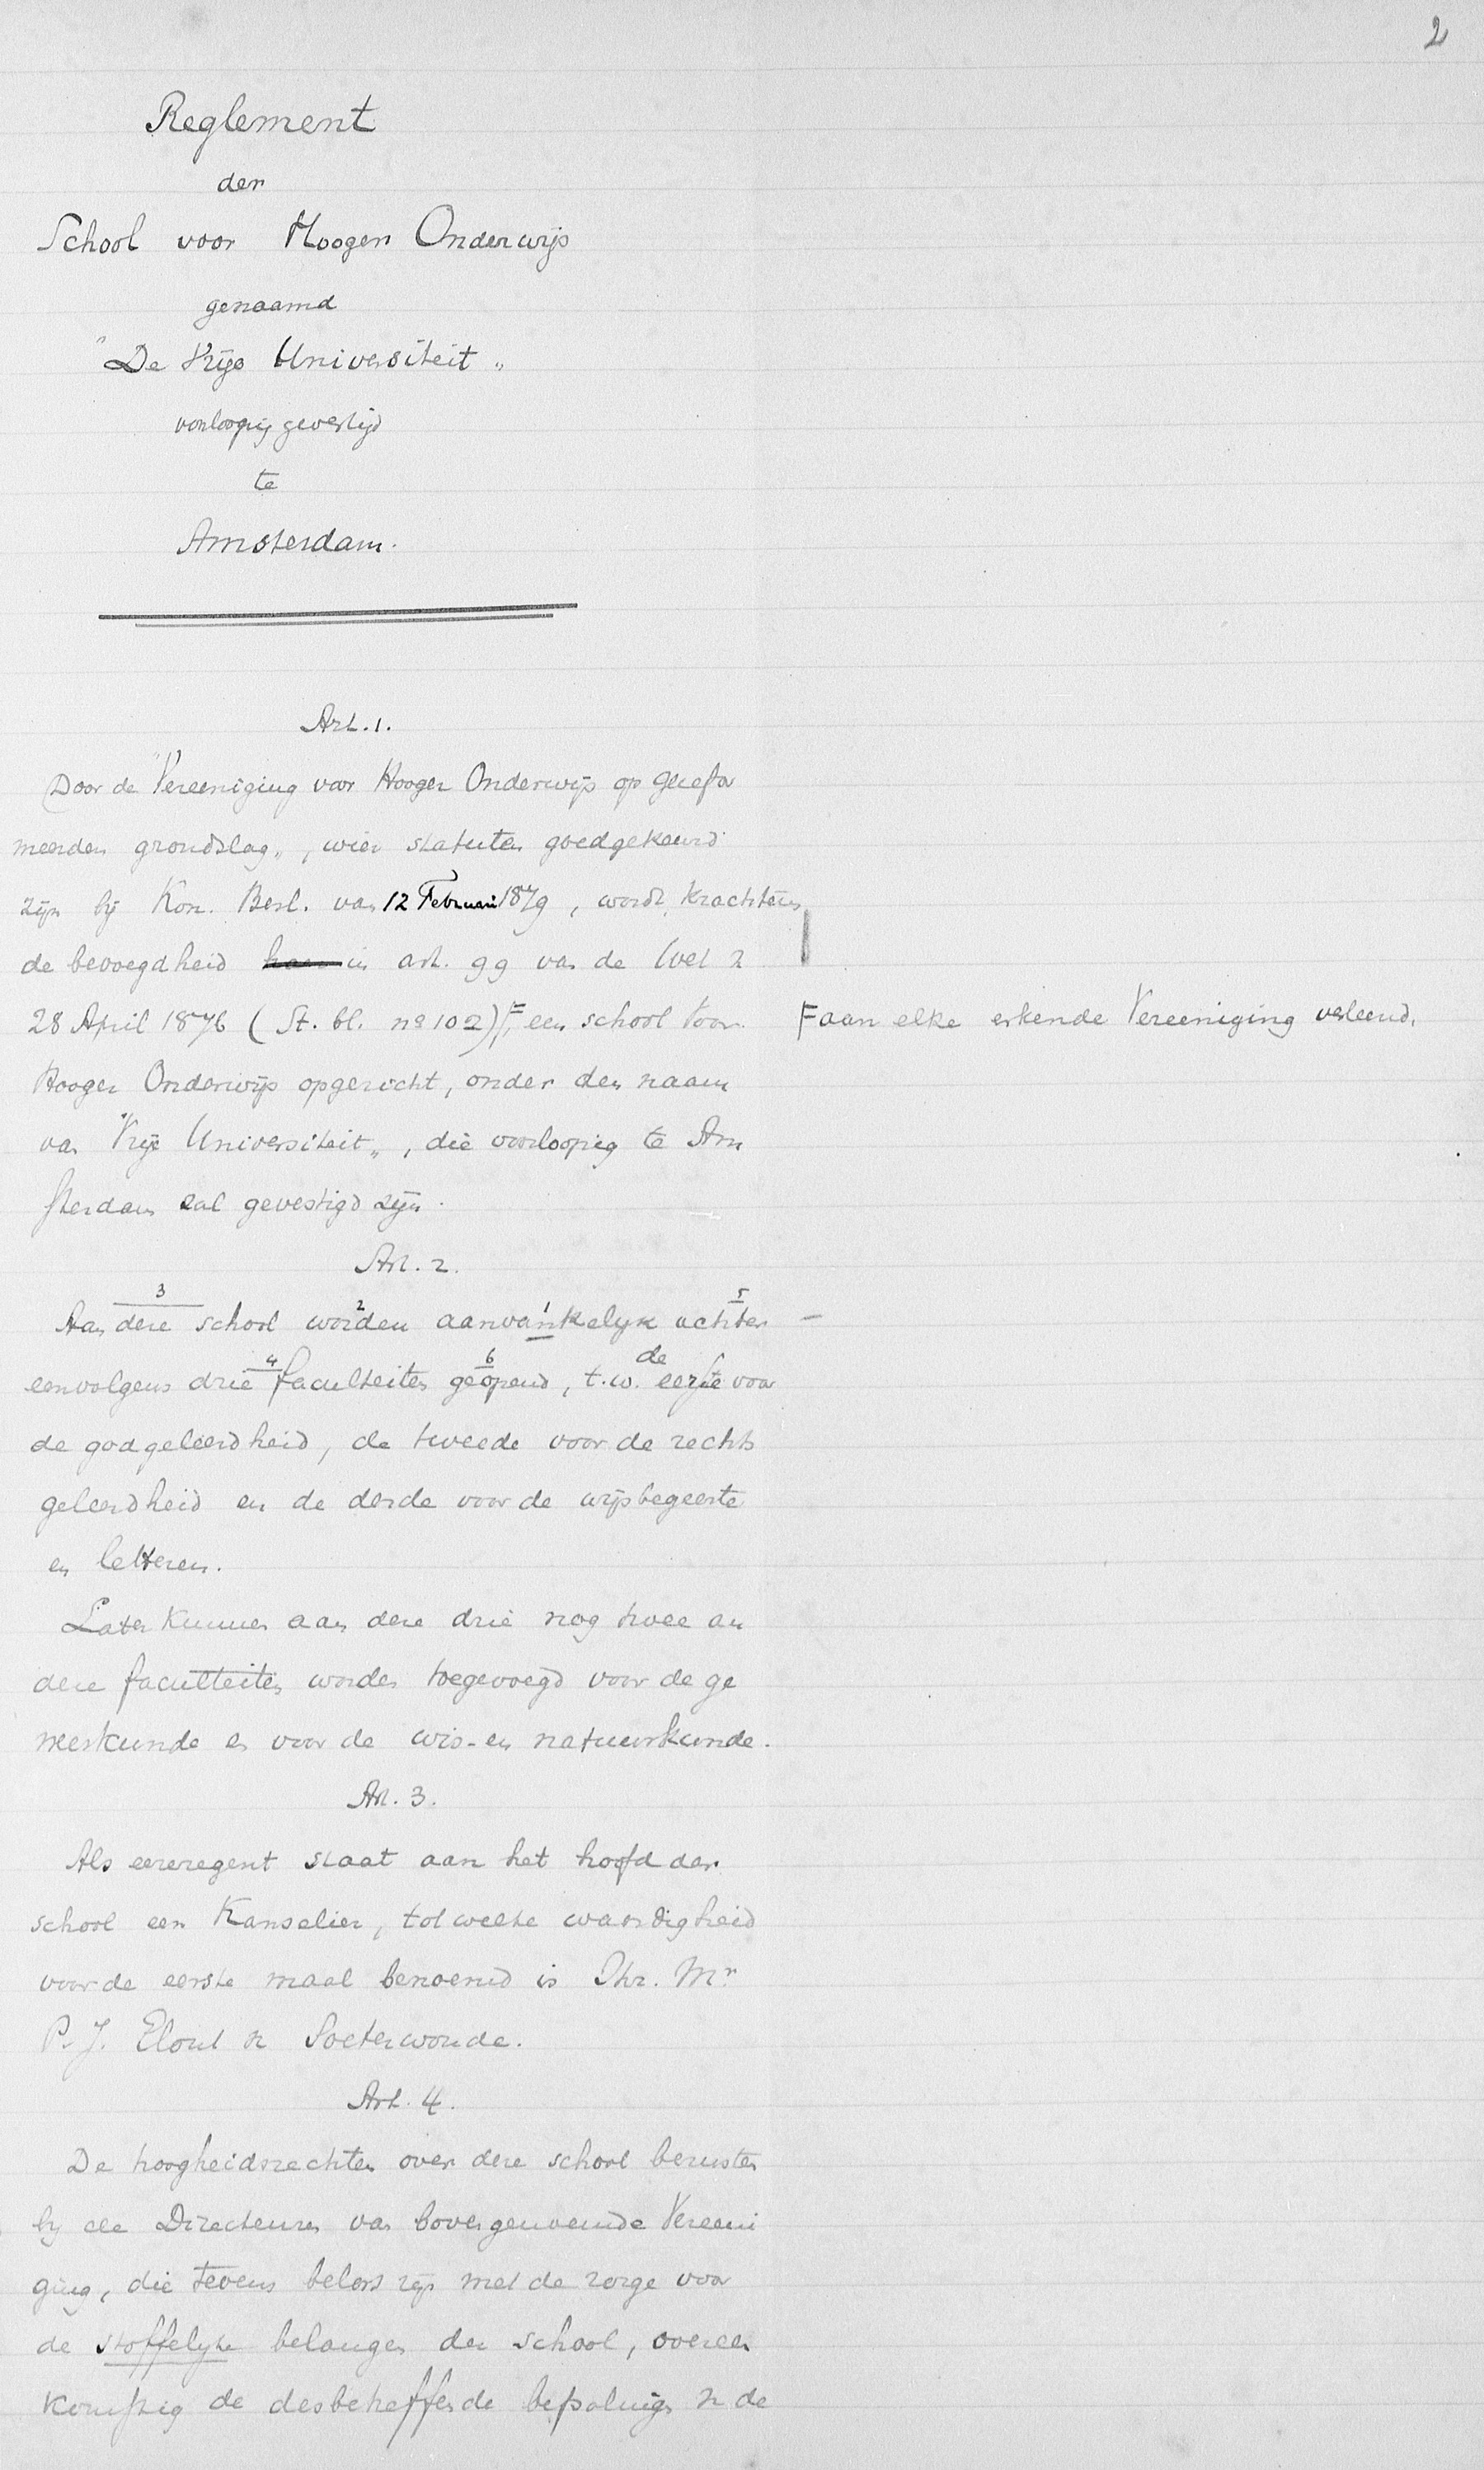 2
Reglement
der
School voor Hooger Onderwijs
genaamd
"De Vrije Universiteit„
voorloopig gevestigd
te
Amsterdam.
Art. 1.
Door de "Vereeniging voor Hooger Onderwijs op gerefor
meerden grondslag„, wier statuten goedgekeurd
zijn bij Kon. Besl. van 12 Februari 1879, wordt, krachtens
de bevoegdheid in art. 99 van de Wet v
28 April 1876 (St. bl. no 102), F een school voor
F aan elke erkende Vereeniging verleend,
Hooger Onderwijs opgericht, onder den naam
van "Vrije Universiteit„, die voorloopig te Am
sterdam zal gevestigd zijn.
Art. 2.
3 2 1 5
Aan deze school worden aanvankelijk achter -
4 6 de
eenvolgens drie faculteiten geopend, t.w. eerste voor
de godgeleerdheid, de tweede voor de rechts
geleerdheid en de derde voor de wijsbegeerte
en letteren.
Later kunnen aan deze drie nog twee an
dere faculteiten worden toegevoegd voor de ge
neeskunde en voor de wis- en natuurkunde.
Art. 3.
Als eereregent staat aan het hoofd der
school een Kanselier, tot welke waardigheid
voor de eerste maal benoemd is Jhr. Mr
P. J. Elout v Soeterwoude.
Art. 4.
De hoogheidsrechten over deze school berusten
bij de Directeuren van bovengenoemde Vereeni
ging, die tevens belast zijn met de zorge voor
de stoffelijke belangen der school, overeen
komstig de desbetreffende bepalingen v de